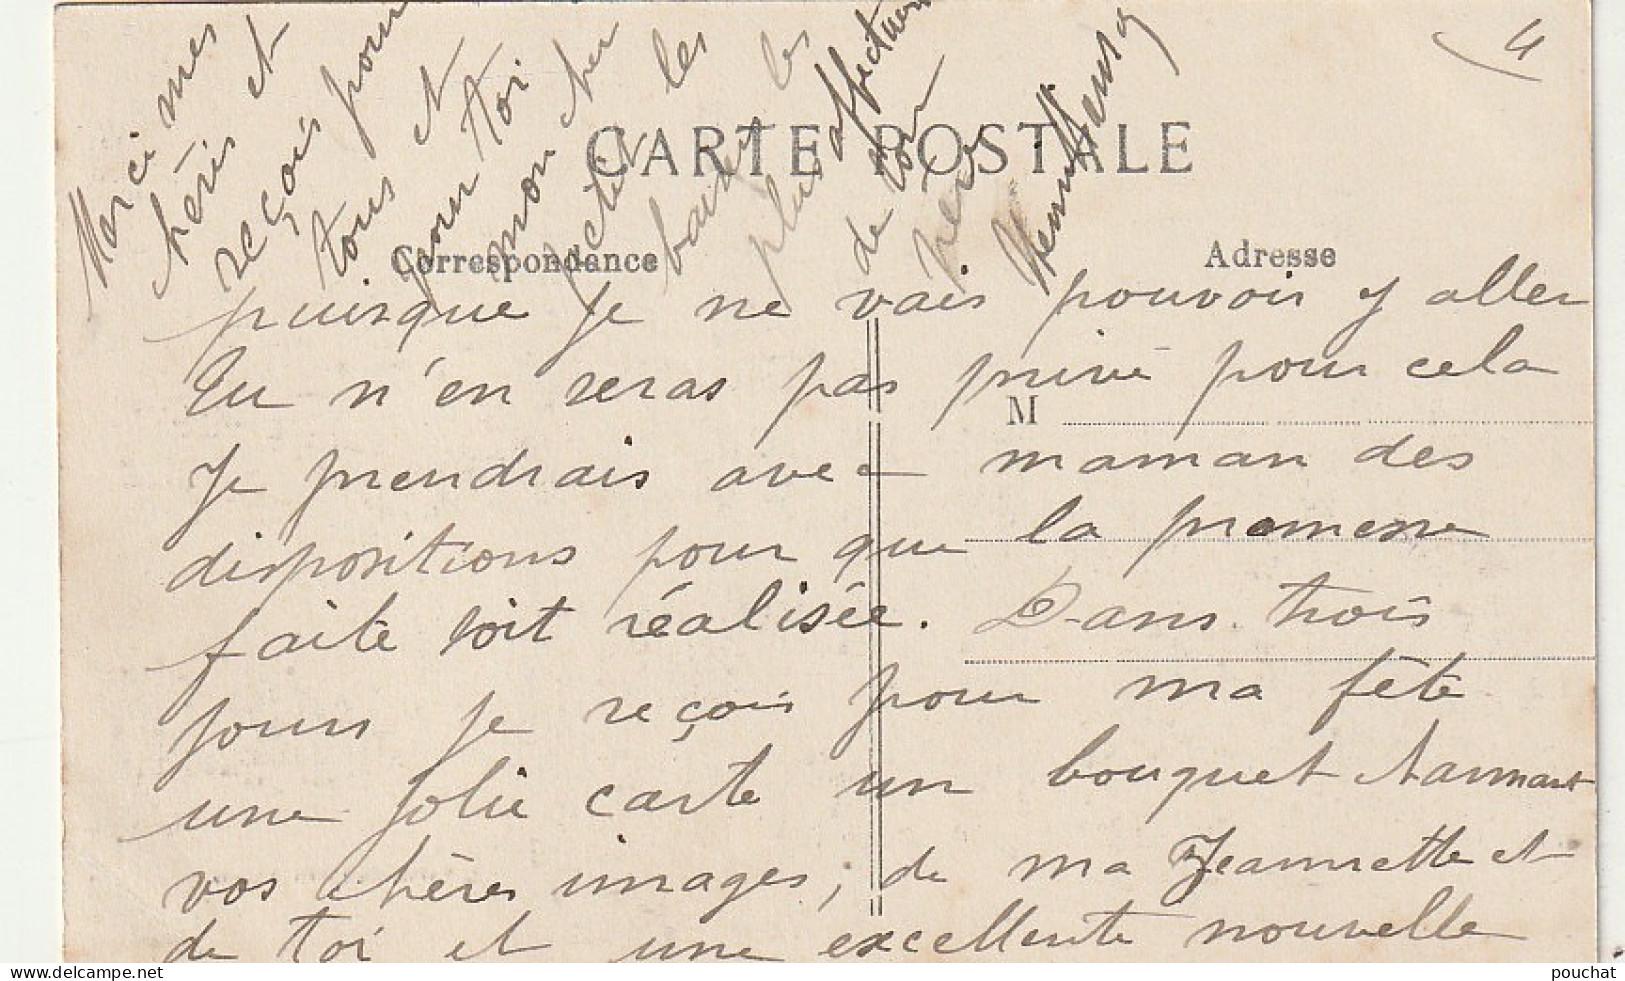 4
CARTE POSTALE
Correspondance
Adresse
M
puisque je ne vais pouvoir y aller
Tu n'en seras pas privé pour cela
Je prendrais avec maman des
dispositions pour que la promesse
faite soit réalisée. Dans trois
jours je reçois pour ma fête
une jolie carte un bouquet charmant
vos chères images, de ma Jeannette et
de toi et une excellente nouvelle
Merci mes
chéris et
reçois pour
tous et
pour toi
mon cher
petit les
baisers les
plus affectueux
de ton
père
Henri
delcampe.net
pouchat